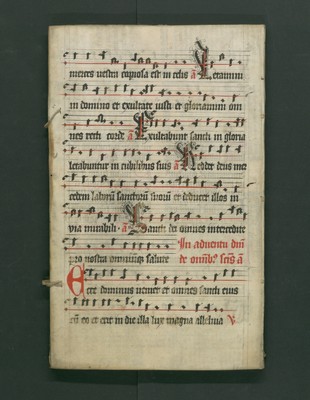 merces vestra copiosa est in celis a Letamini
in domino et exultate iusti et gloriamini om
nes recti corde a Exultabunt sancti in gloria
letabuntur in cubilibus suis a Reddet deus mer
cedem laborum sanctorum suorum et deducet illos in
via mirabili a Sancti dei omnes intercedite
pro nostra omniumque salute In adventu dni
de omnibus scis a
Ecce dominus veniet et omnes sancti eius
cum eo et erit in die illa lux magna alleluia v